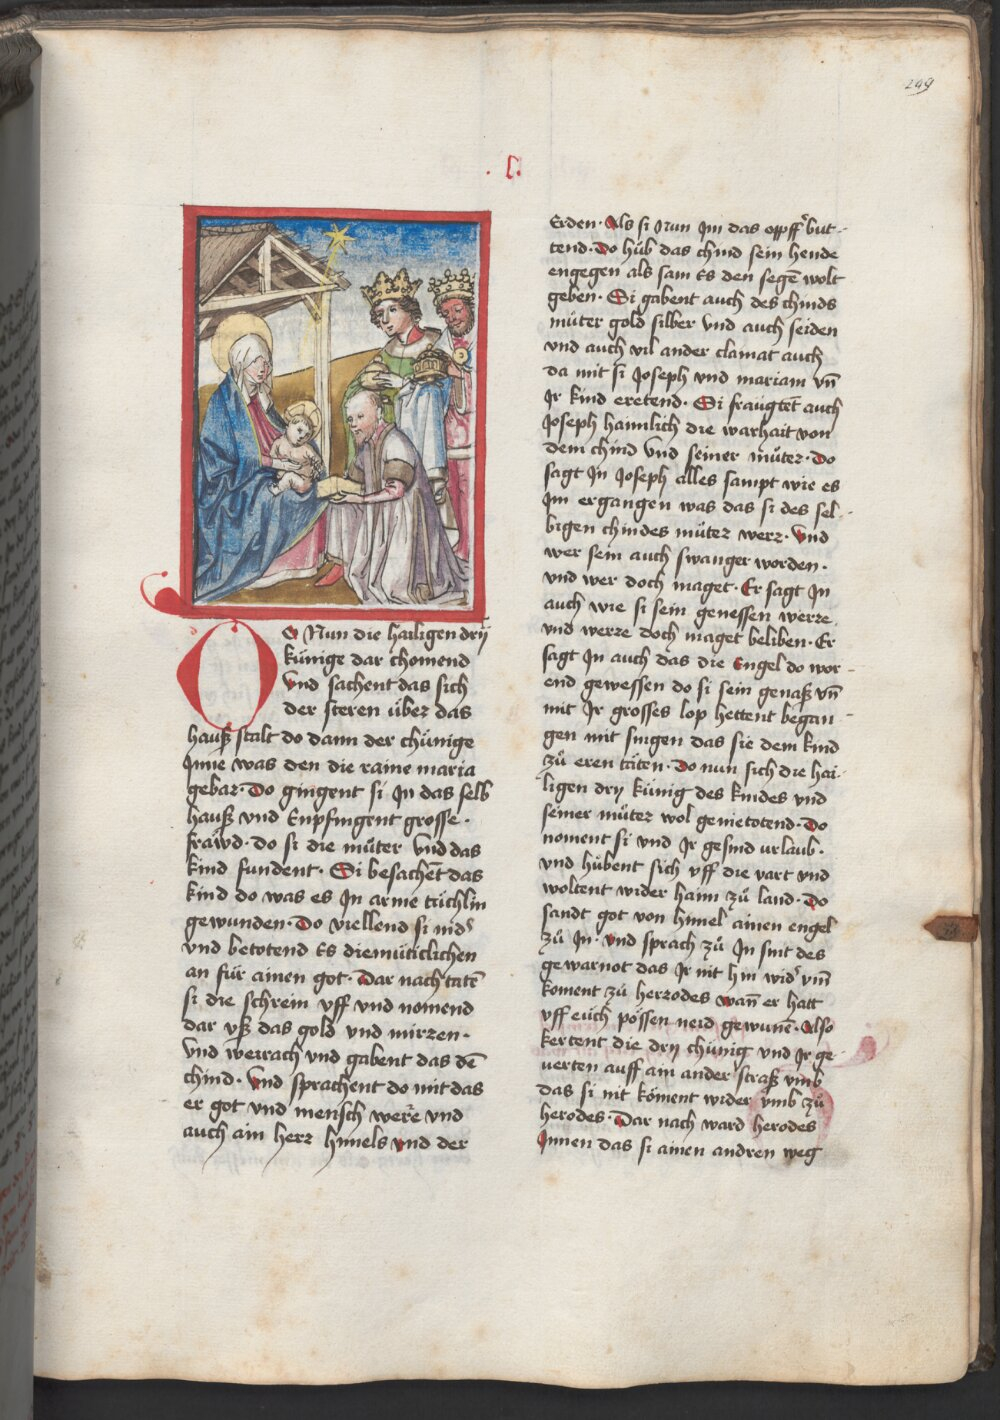 299
· l ·
DO Nun die hailigen drÿ
künige dar chomend
Vnd sachent das sich
der steren über das
hauß stalt do dann der chünige
Inne was den die raine maria
gebar· Do gingent si In das selb
hauß vnd Enpfingent grosse·
fräwd· do si die müter vnd das
kind fundent· Si besachēt das
kind do was es In arme tüchlin
gewunden· Do viellend si nid
vnd betotend Es diemüticlichen
an für ainen got· Dar nach tatē
si die schrein vff vnd nomend
dar vß das gold vnd mirren·
Vnd weirach vnd gabent das dē
chind· Vnd sprachent do mit das
er got vnd mensch were vnd
auch ain herr himels vnd der
Erden· Als si Nun Im das opff but-
tend· Do hüb das chind sein hende
engegen als sam Es den segē wolt
geben· Si gabent auch des chinds
müter gold silber vnd auch seiden
vnd auch vil ander clainat auch
da mit si Joseph vnd mariam vn̄
Ir kind eretend· Si fraügtet auch
Joseph haimlich die warhait von
dem chind vnd seiner müter· Do
sagt In Joseph alles sampt wie es
Im ergangen was das si des sel-
bigen chindes müter wer· Vnd
wer sein auch swanger worden·
vnd wer doch maget· Er sagt In
auch wie si sein genessen werre
vnd werre doch maget beliben· Er
sagt In auch das die Engel do wor-
end gewessen do si sein genaß vn̄
mit Ir grosses lop hettent began-
gen mit singen das sie dem kind
zü eren täten· Do nun sich die hai-
ligen drÿ künig des kindes vnd
seiner müter wol genietotend· Do
noment si vnd Ir gesind vrlaub·
vnd hübent sich vff die vart vnd
woltent wider haim zü land· Do
sandt got von himel ainen engel
zü In· vnd sprach zü In sint des
gewarnot das Ir nit hin wid vm̄
koment zü herrodes wan̄ er hatt
vff eüch pössen neid gewunē· Also
kertent die drÿ chünig vnd Ir ge-
uerten auff ain ander straß vmb
das si nit köment wider vmb zü
herodes· Dar nach ward herodes
Innen das si ainen andren weg